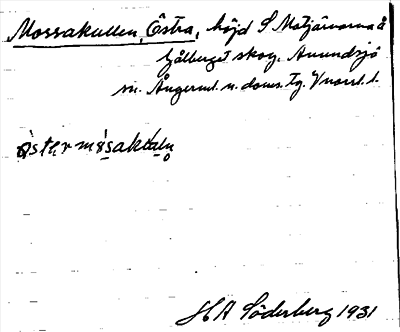 Mossakullen, Östra, höjd S Motjärnarna å
Gålberget skog. Anundsjö
sn. Ångerml. n. doms. tg. Vnorrl. l.
östermosakuln
HA Söderberg 1931